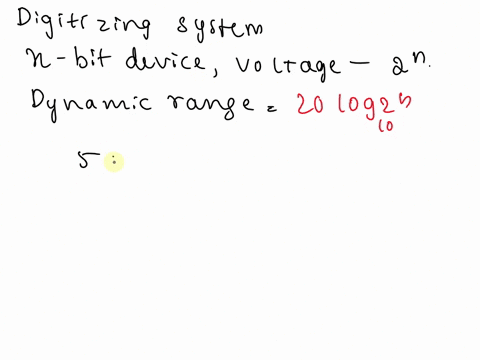 Digitizing system
n-bit device, voltage - 2ⁿ.
Dynamic range = 20 log₁₀2ⁿ
5 :